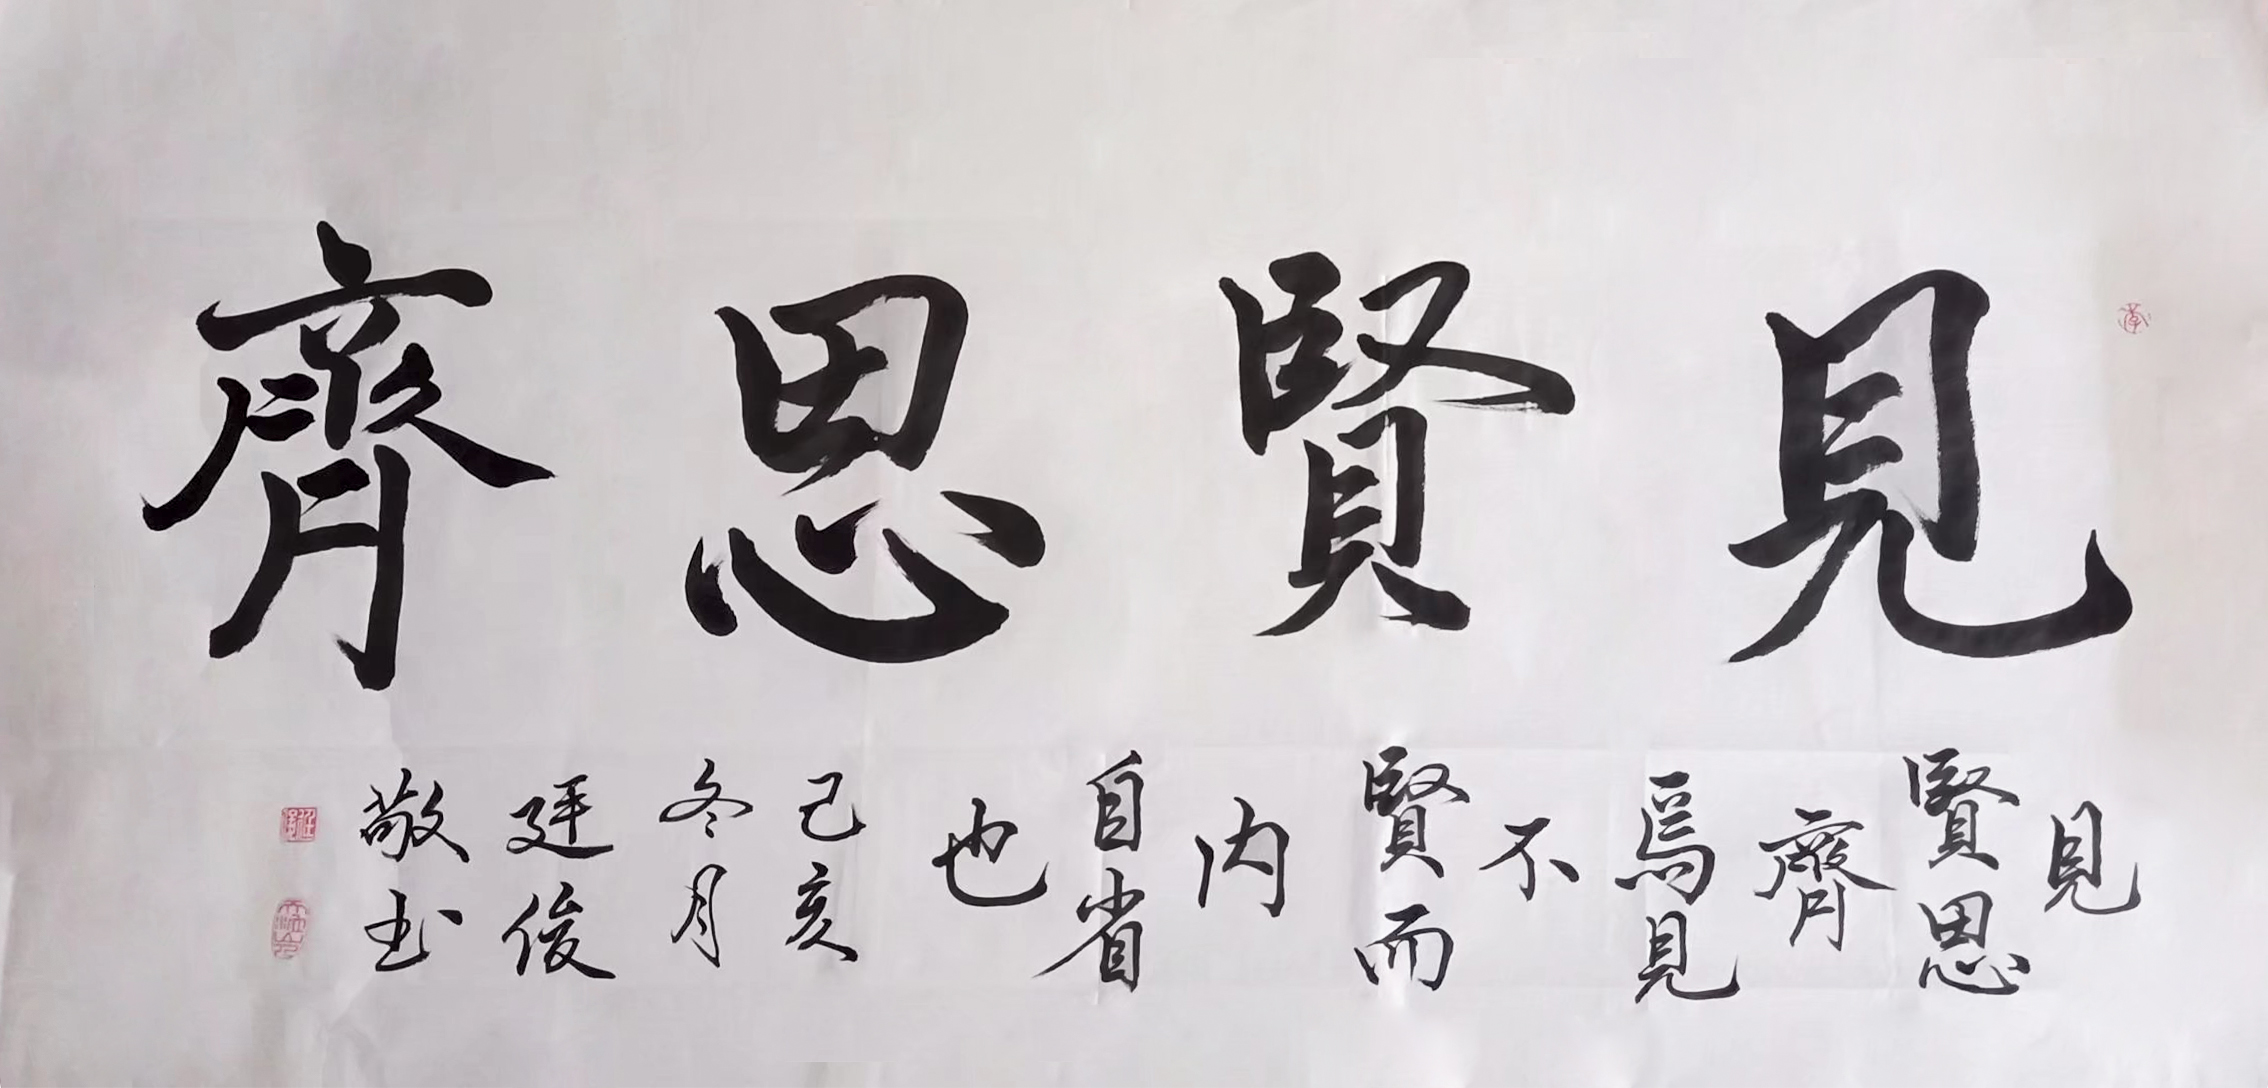 見賢思齊
見
賢思
齊
焉見
不
賢而
内
自省
也
己亥
冬月
廷俊
敬书